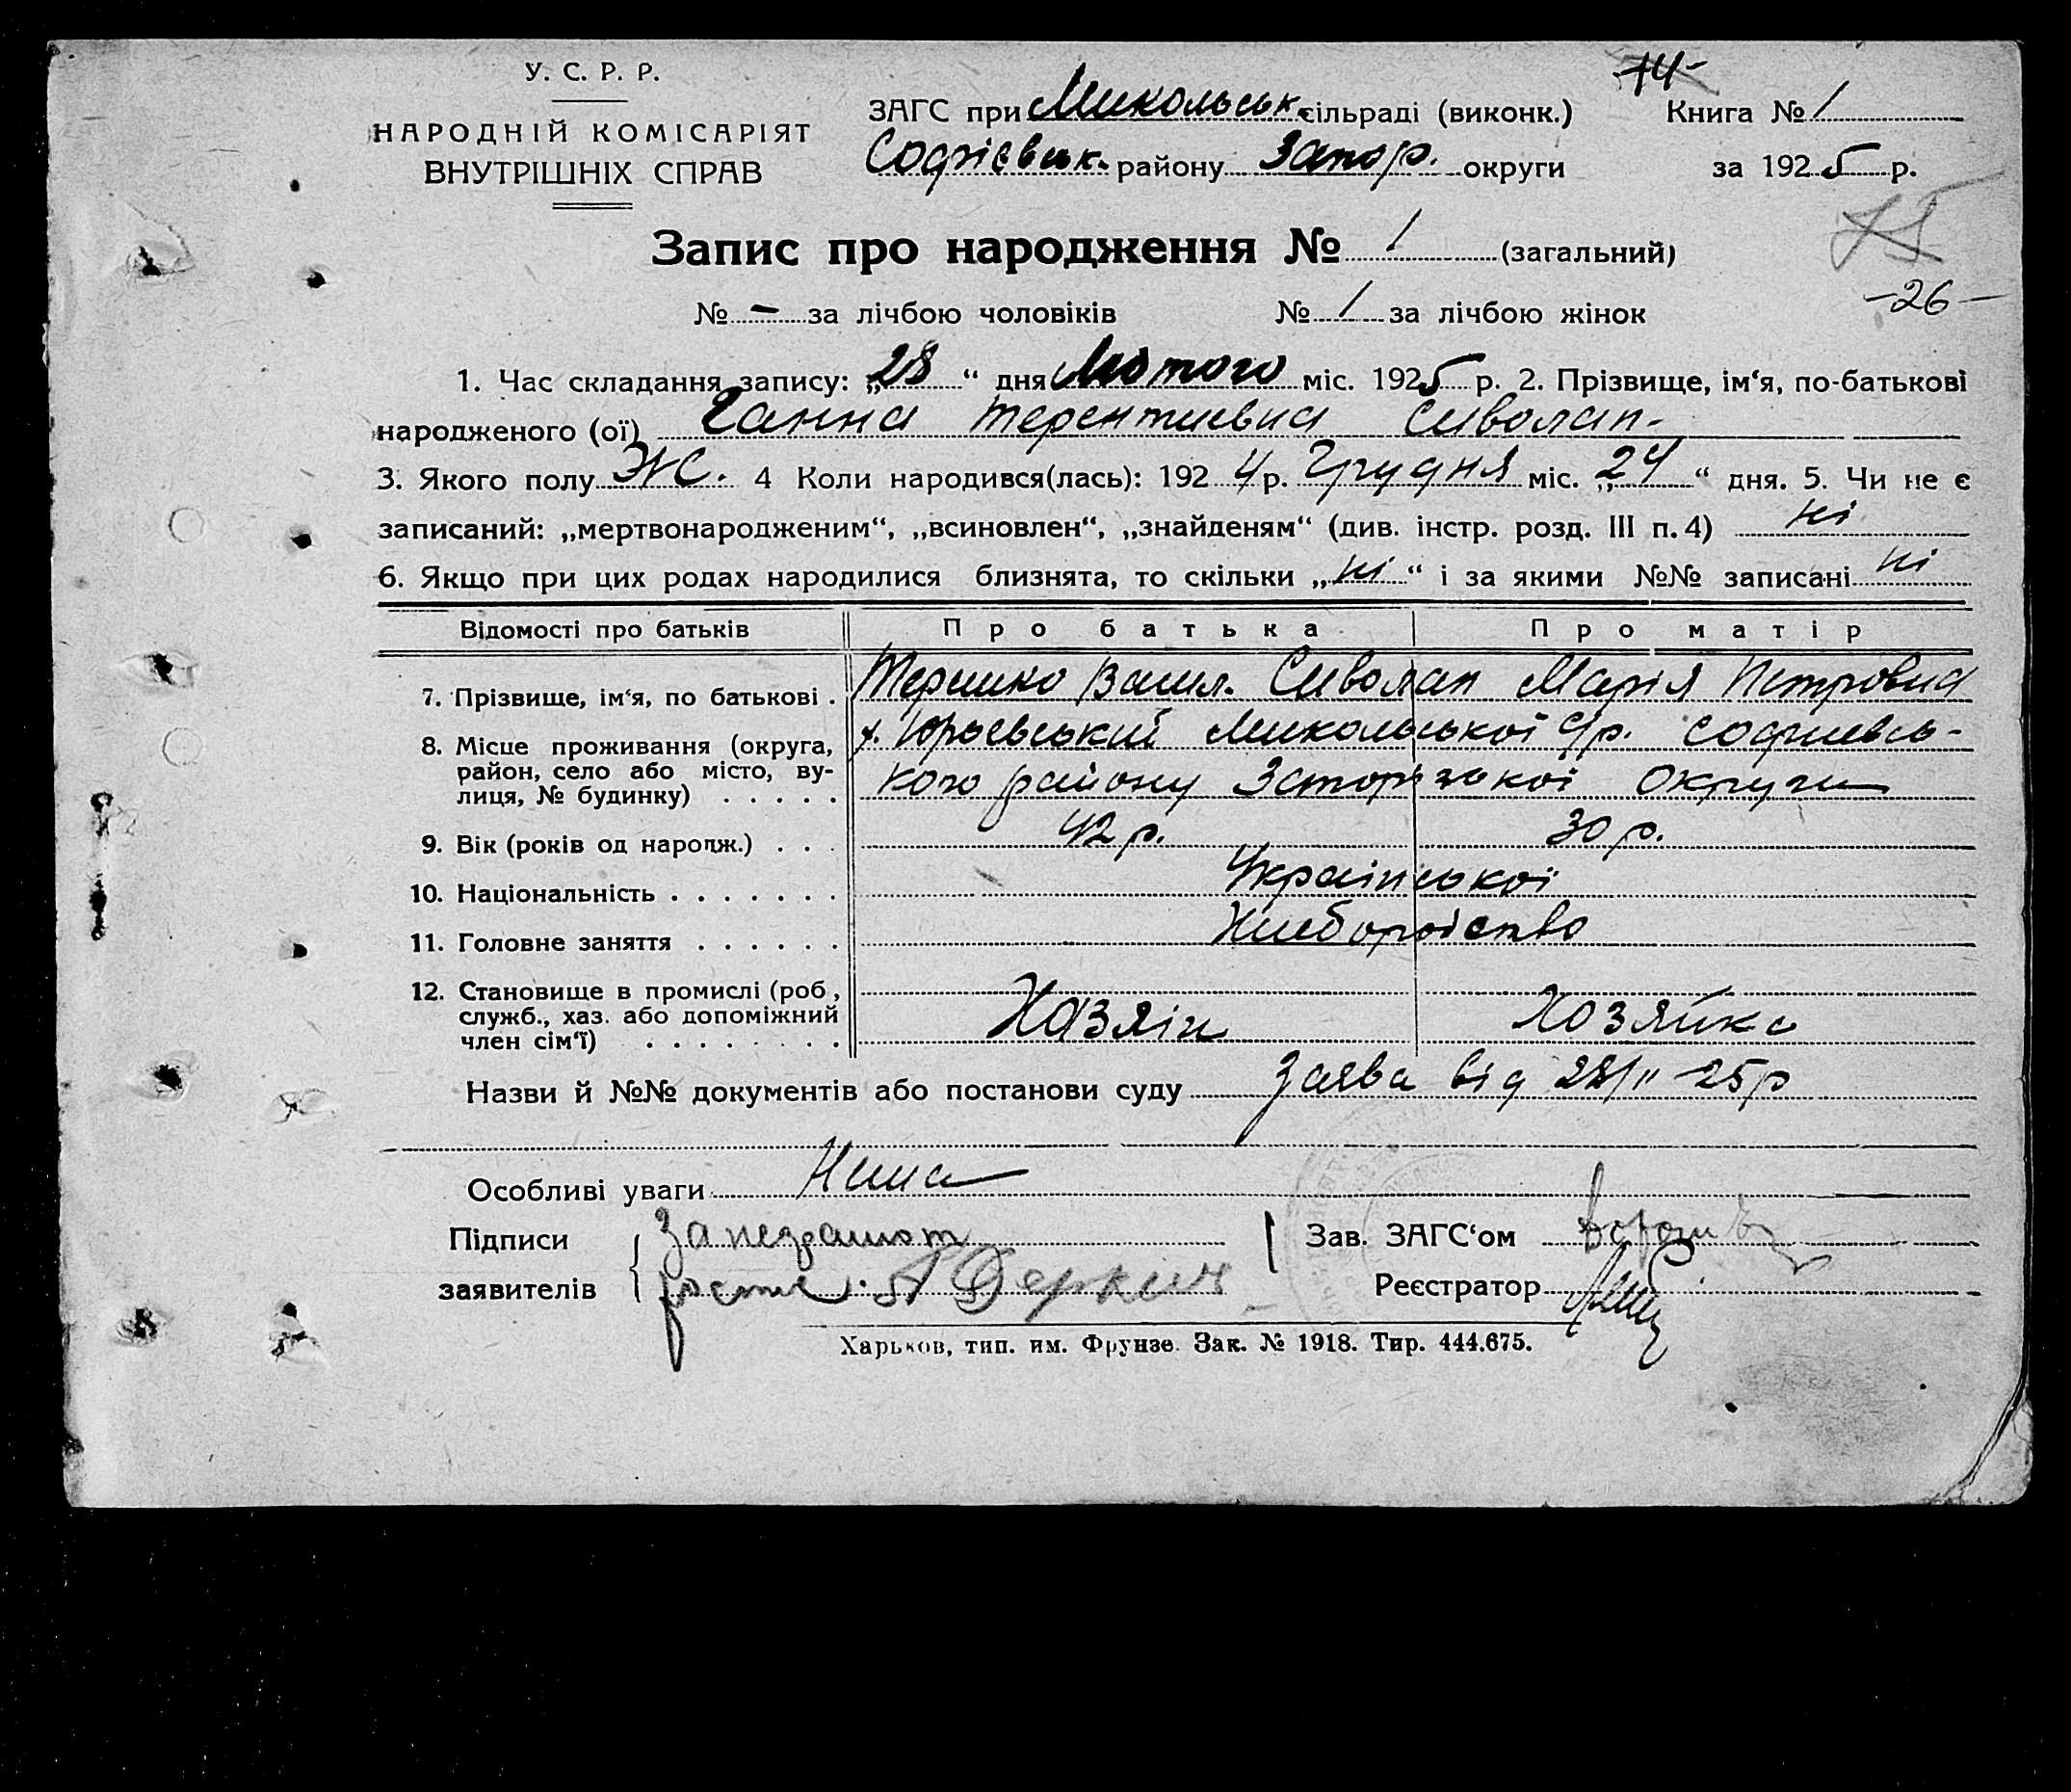 У. С. Р. Р.
НАРОДНІЙ КОМІСАРІЯТ
ВНУТРІШНІХ СПРАВ
14-
ЗАГС при Микольськ. сільраді (виконк.) Книга № 1
Софієвськ. району Запор. округи за 1925 р.
Запис про народження № 1 (загальний)
№ - за лічбою чоловіків № 1 за лічбою жінок
-26-
1. Час складання запису: „28“ дня Лютого міс. 1925 р. 2. Прізвище, ім‘я, по-батькові
народженого (ої) Ганна Терентиевна Сиволап-
3. Якого полу Ж. 4 Коли народився(лась): 1924 р. Грудня міс. „24“ дня. 5. Чи не є
записаний: „мертвонародженим“, „всиновлен“, „знайденям“ (див. інстр. розд. III п. 4) ні
6. Якщо при цих родах народилися близнята, то скільки „ні“ і за якими №№ записані ні
Відомості про батьків Про батька Про матір
7. Прізвище, ім‘я, по батькові . Васил. Сиволап Марія Петровна
8. Місце проживання (округа, х. Юрьевський Микольської с/р. Софиевсь-
район, село або місто, ву-
лиця, № будинку) . . . . . кого району Запорізької Округи
9. Вік (років од народж.) . . . 42 р. 30 р.
10. Національність . . . . . . . Української
11. Головне заняття . . . . . . Хлеборобство
12. Становище в промислі (роб.,
служб., хаз. або допоміжний Хазяін Хозяйка
член сім‘ї) . . . . . . . .
Назви й №№ документів або постанови суду Заява від 28/II-25р
Особливі уваги Нима
Підписи За неграмот Зав. ЗАГС‘ом
заявителів Реєстратор
Харьков, тип. им. Фрунзе. Зак. № 1918. Тир. 444.675.